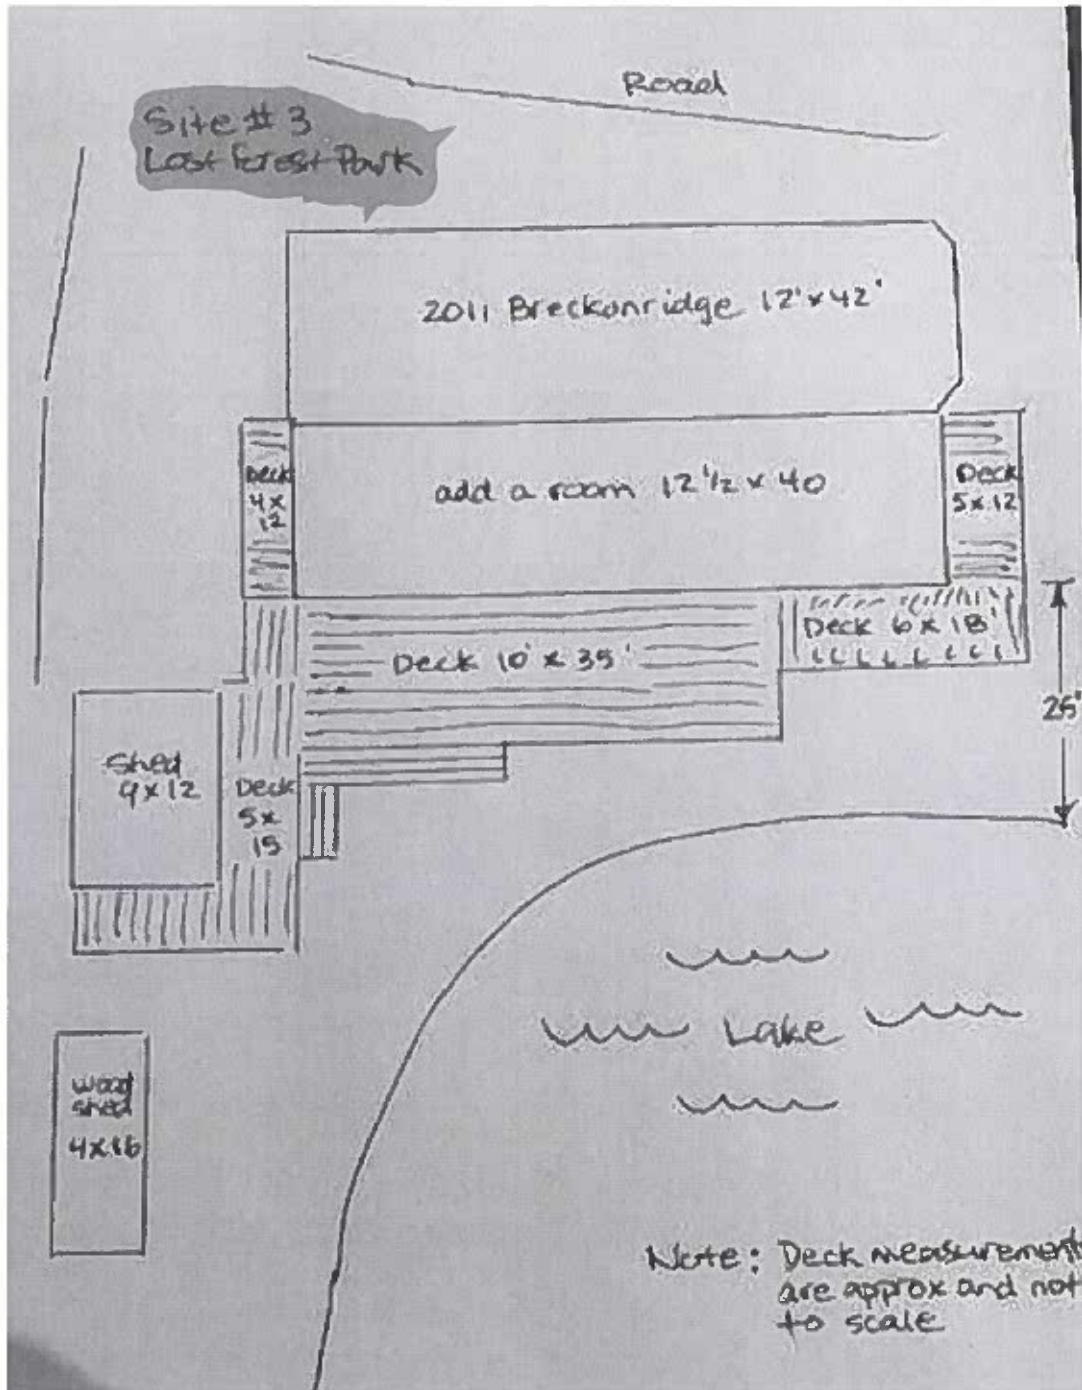 Road
Site # 3
Lost Forest Park
2011 Breckonridge 12'x42'
Deck
4x
12
add a room 12 1/2 x 40
Deck
5x12
Deck 10' x 35'
Deck 6 x 18'
25'
Shed
9x12
Deck
5x
15
Lake
wood
shed
4x16
Note: Deck measurements
are approx and not
to scale